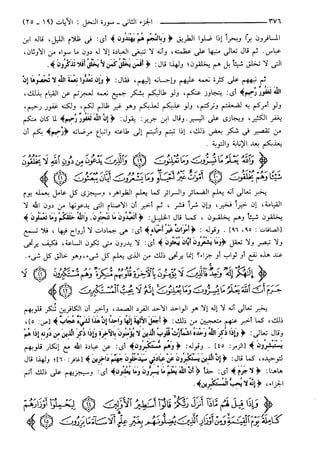 ٣٧٦ الجزء الثاني ـ سورة النحل : الآيات (١٩ ـ ٢٥)
المسافرون براً وبحراً إذا ضلوا الطريق ﴿وَبِالنَّجْمِ هُمْ يَهْتَدُونَ﴾ أي: في ظلام الليل، قاله ابن
عباس. ثم قال تعالى منبهاً على عظمته، وأنه لا تنبغي العبادة إلا له دون ما سواه من الأوثان،
التي لا تخلق شيئاً بل هم يخلقون، ولهذا قال: ﴿أَفَمَن يَخْلُقُ كَمَن لَّا يَخْلُقُ أَفَلَا تَذَكَّرُونَ﴾.
ثم نبههم على كثرة نعمه عليهم وإحسانه إليهم، فقال: ﴿وَإِن تَعُدُّوا نِعْمَةَ اللَّهِ لَا تُحْصُوهَا إِنَّ
اللَّهَ لَغَفُورٌ رَّحِيمٌ﴾ أي: يتجاوز عنكم، ولو طالبكم بشكر جميع نعمه لعجزتم عن القيام بذلك،
ولو أمركم به لضعفتم وتركتم، ولو عذبكم لعذبكم وهو غير ظالم لكم، ولكنه غفور رحيم،
يغفر الكثير، ويجازي على اليسير. وقال ابن جرير: يقول: ﴿إِنَّ اللَّهَ لَغَفُورٌ﴾ لما كان منكم
من تقصير في شكر بعض ذلك، إذا تبتم وأنبتم إلى طاعته واتباع مرضاته ﴿رَّحِيمٌ﴾ بكم أن
يعذبكم بعد الإنابة والتوبة.
﴿وَاللَّهُ يَعْلَمُ مَا تُسِرُّونَ وَمَا تُعْلِنُونَ ﴿١٩﴾ وَالَّذِينَ يَدْعُونَ مِن دُونِ اللَّهِ لَا يَخْلُقُونَ
شَيْئًا وَهُمْ يُخْلَقُونَ ﴿٢٠﴾ أَمْوَاتٌ غَيْرُ أَحْيَاءٍ وَمَا يَشْعُرُونَ أَيَّانَ يُبْعَثُونَ ﴿٢١﴾﴾
يخبر تعالى أنه يعلم الضمائر والسرائر كما يعلم الظواهر، وسيجزي كل عامل بعمله يوم
القيامة، إن خيراً فخير، وإن شراً فشر، ثم أخبر أن الأصنام التي يدعونها من دون الله لا
يخلقون شيئاً وهم يخلقون، كما قال الخليل: ﴿أَتَعْبُدُونَ مَا تَنْحِتُونَ. وَاللَّهُ خَلَقَكُمْ وَمَا تَعْمَلُونَ﴾
[الصافات: ٩٥، ٩٦]. وقوله: ﴿أَمْوَاتٌ غَيْرُ أَحْيَاءٍ﴾ أي: هي جمادات لا أرواح فيها، فلا تسمع
ولا تبصر ولا تعقل ﴿وَمَا يَشْعُرُونَ أَيَّانَ يُبْعَثُونَ﴾ أي: لا يدرون متى تكون الساعة، فكيف يرتجى
عند هذه نفع أو ثواب أو جزاء؟ إنما يرتجى ذلك من الذي يعلم كل شيء، وهو خالق كل شيء.
﴿إِلَٰهُكُمْ إِلَٰهٌ وَاحِدٌ فَالَّذِينَ لَا يُؤْمِنُونَ بِالْآخِرَةِ قُلُوبُهُم مُّنكِرَةٌ وَهُم مُّسْتَكْبِرُونَ ﴿٢٢﴾ لَا
جَرَمَ أَنَّ اللَّهَ يَعْلَمُ مَا يُسِرُّونَ وَمَا يُعْلِنُونَ إِنَّهُ لَا يُحِبُّ الْمُسْتَكْبِرِينَ ﴿٢٣﴾﴾
يخبر تعالى أنه لا إله إلا هو الواحد الأحد الفرد الصمد، وأخبر أن الكافرين تُنكر قلوبهم
ذلك، كما أخبر عنهم متعجبين من ذلك: ﴿أَجَعَلَ الْآلِهَةَ إِلَٰهًا وَاحِدًا إِنَّ هَٰذَا لَشَيْءٌ عُجَابٌ﴾ [ص: ٥]،
وقال تعالى: ﴿وَإِذَا ذُكِرَ اللَّهُ وَحْدَهُ اشْمَأَزَّتْ قُلُوبُ الَّذِينَ لَا يُؤْمِنُونَ بِالْآخِرَةِ وَإِذَا ذُكِرَ الَّذِينَ مِن دُونِهِ إِذَا هُمْ
يَسْتَبْشِرُونَ﴾ [الزمر: ٤٥]. وقوله: ﴿وَهُم مُّسْتَكْبِرُونَ﴾ أي: عن عبادة الله مع إنكار قلوبهم
لتوحيده، كما قال: ﴿إِنَّ الَّذِينَ يَسْتَكْبِرُونَ عَنْ عِبَادَتِي سَيَدْخُلُونَ جَهَنَّمَ دَاخِرِينَ﴾ [غافر: ٦٠]، ولهذا قال
هاهنا: ﴿لَا جَرَمَ﴾ أي: حقاً ﴿أَنَّ اللَّهَ يَعْلَمُ مَا يُسِرُّونَ وَمَا يُعْلِنُونَ﴾ أي: وسيجزيهم على ذلك أتم
الجزاء، ﴿إِنَّهُ لَا يُحِبُّ الْمُسْتَكْبِرِينَ﴾.
﴿وَإِذَا قِيلَ لَهُم مَّاذَا أَنزَلَ رَبُّكُمْ قَالُوا أَسَاطِيرُ الْأَوَّلِينَ ﴿٢٤﴾ لِيَحْمِلُوا أَوْزَارَهُمْ
كَامِلَةً يَوْمَ الْقِيَامَةِ وَمِنْ أَوْزَارِ الَّذِينَ يُضِلُّونَهُم بِغَيْرِ عِلْمٍ أَلَا سَاءَ مَا يَزِرُونَ ﴿٢٥﴾﴾